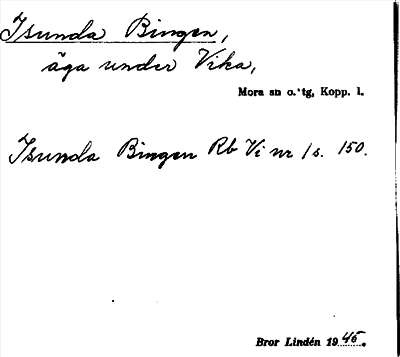 Isunda Bingen,
äga under Vika,
Mora sn o. tg, Kopp. l.
Isunda Bingen Rb Vi nr 1 s. 150.
Bror Lindén 1946.